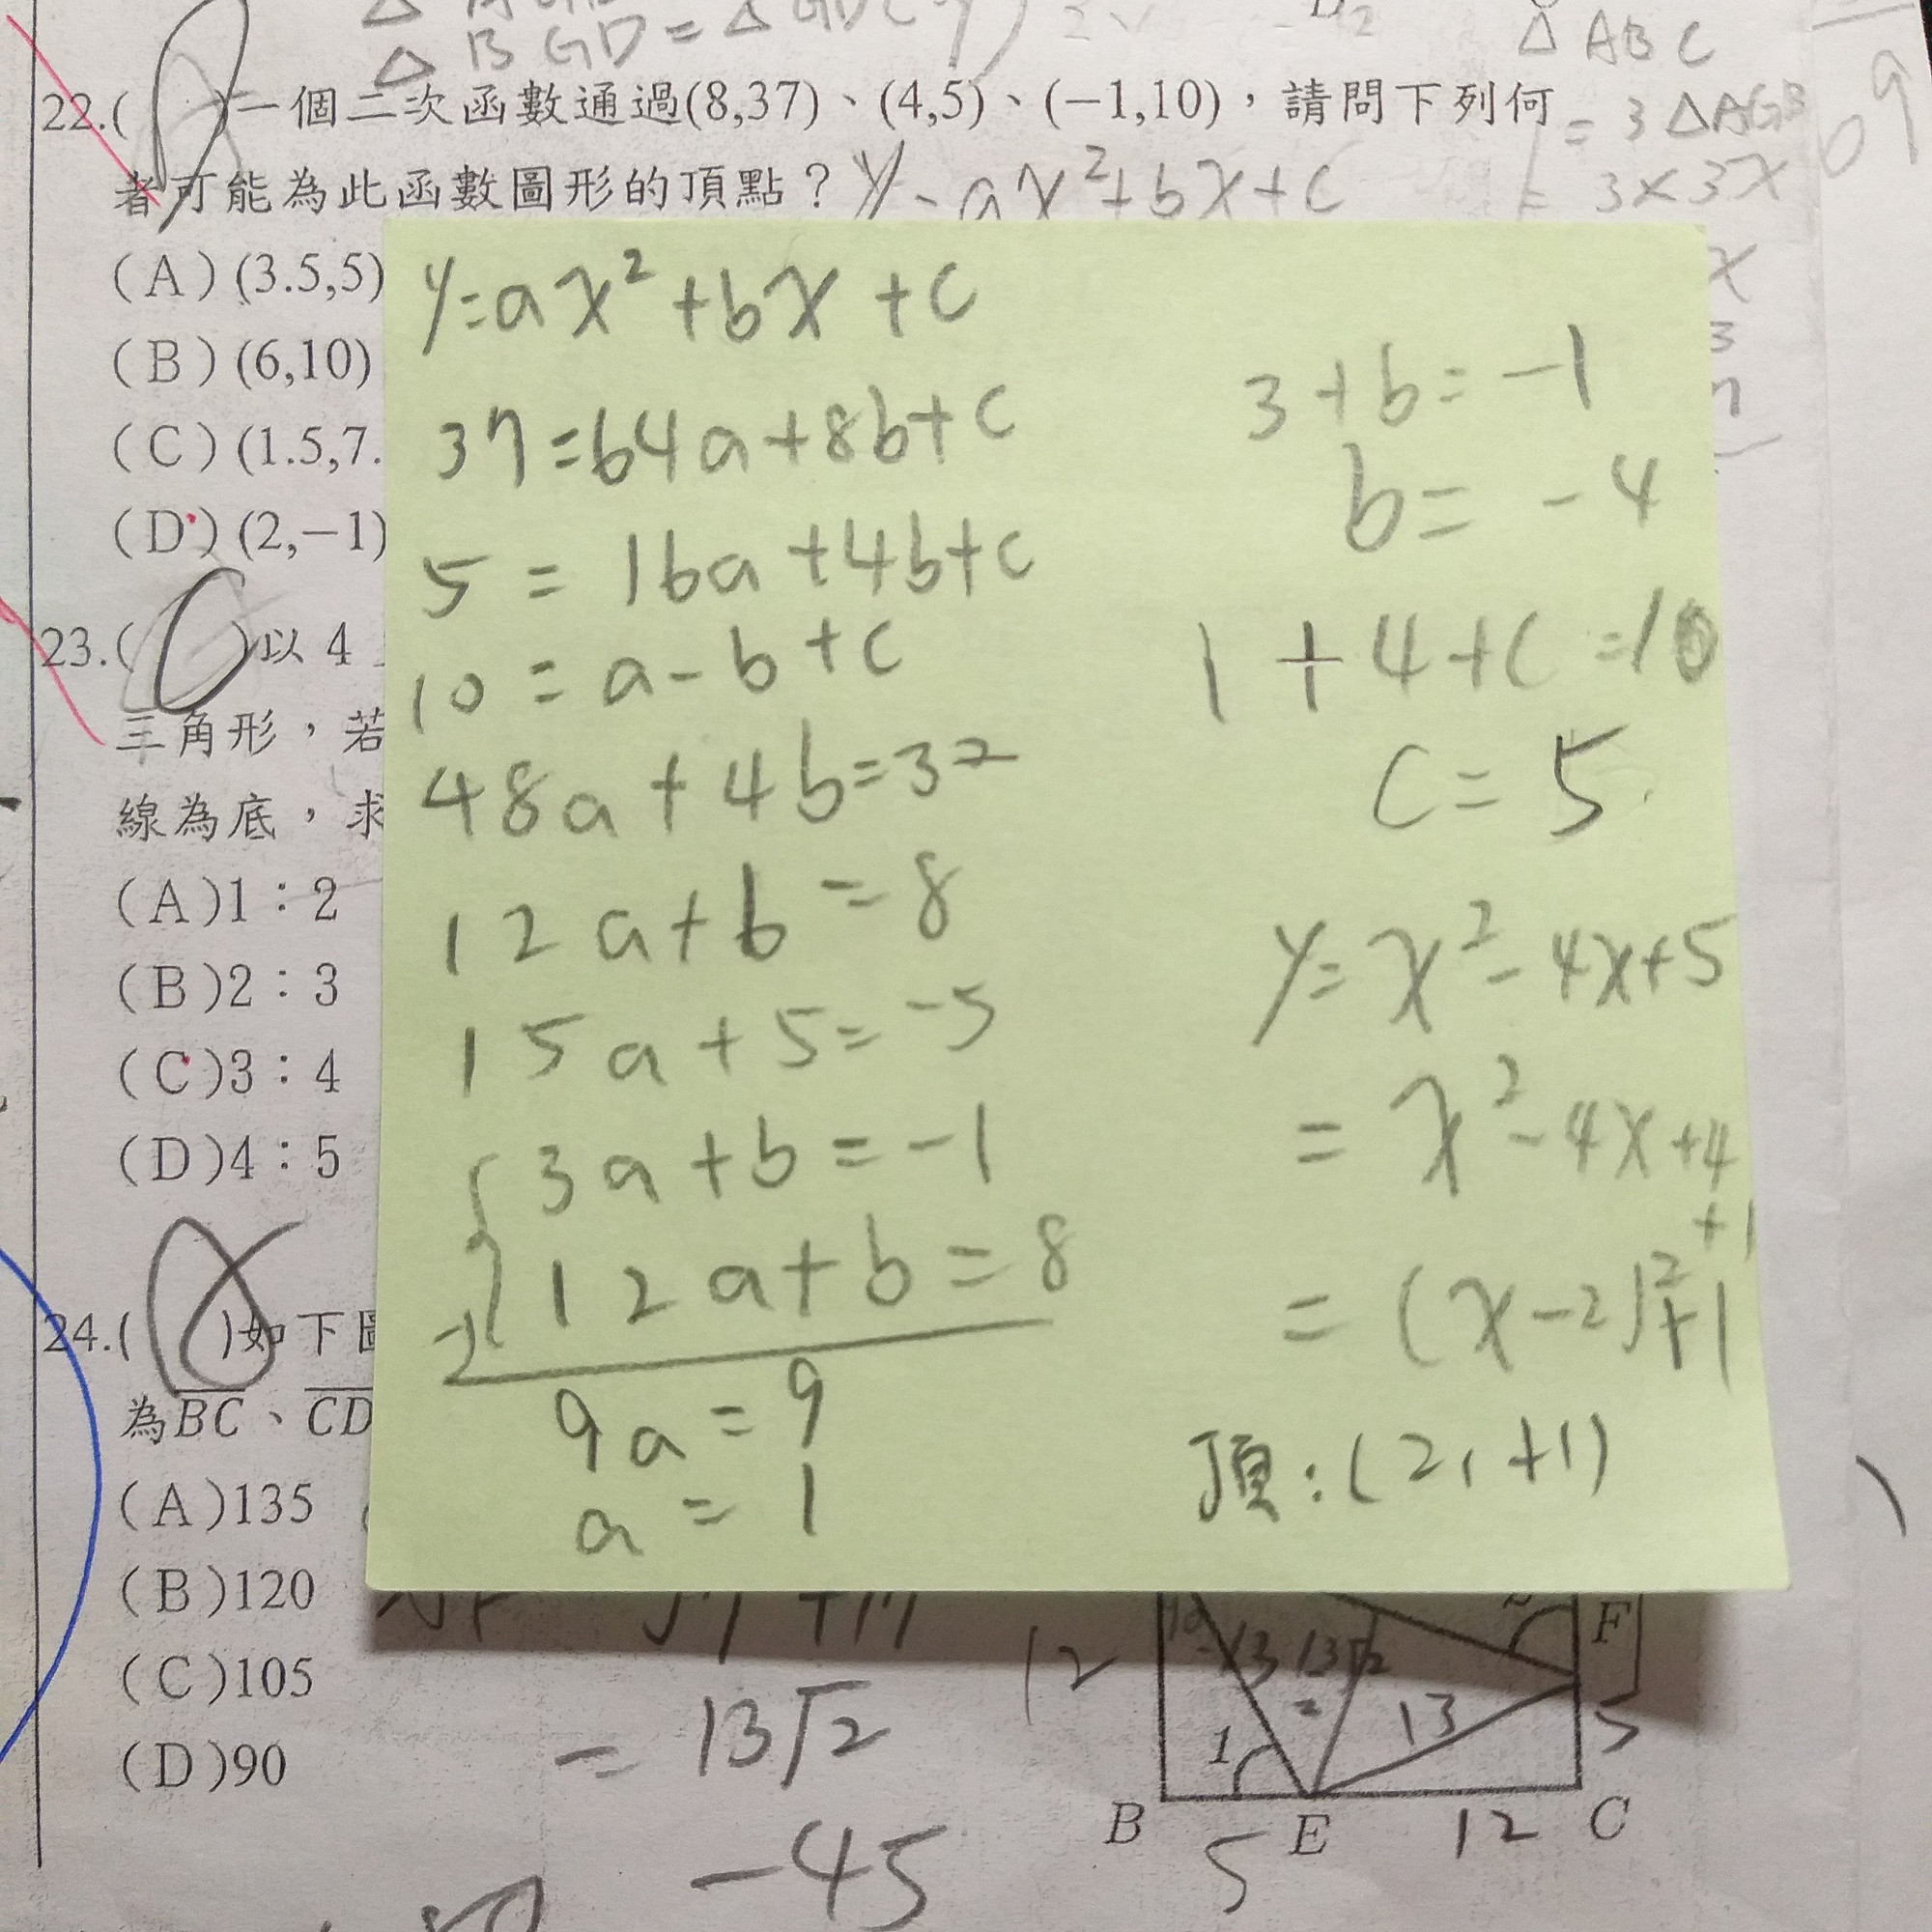 △ BGD = △ GDC
△ ABC
= 3 △AGB
= 3×3x
22.( )一個二次函數通過(8,37)、(4,5)、(−1,10)，請問下列何
者可能為此函數圖形的頂點？ y=ax²+bx+c
(A)(3.5,5)
(B)(6,10)
(C)(1.5,7.
(D)(2,−1)
y=ax²+bx+c
37=64a+8b+c
5=16a+4b+c
10=a-b+c
48a+4b=32
12a+b=8
15a+5=-5
3a+b=-1
12a+b=8
9a=9
a=1
3+b=-1
b=-4
1+4+c=10
c=5
y=x²-4x+5
=x²-4x+4
+1
=(x-2)²+1
頂:(2,+1)
23.( )以 4
三角形，若
線為底，求
(A)1：2
(B)2：3
(C)3：4
(D)4：5
24.( )如下圖
為BC、CD
(A)135
(B)120
(C)105
(D)90
=13√2
-45
12
13
13
F
5
1
B
E
C
5
12